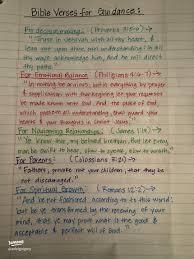 Bible Verses for Guidance:
For decisionmaking: (Proverbs 3:5-6)
"Trust in the Lord with all thy heart, &
lean not upon thine own understanding: In all
thy ways acknowledge him, and He will direct
thy paths."
For Emotional Balance: (Philippians 4:6-7)
"Be anxious in nothing; but in everything by prayer
& supplication with thanksgiving let your requests
be made known unto God. And the peace of God,
which passeth all understanding, shall guard your
hearts & your thoughts in Christ Jesus."
For Navigating Relationships: (James 1:19)
"Ye know this, my beloved brethren. But let every
man be swift to hear, slow to speak, slow to wrath."
For Parents: (Colossians 3:21)
"Fathers, provoke not your children, that they be
not discouraged."
For Spiritual Growth: (Romans 12:2)
"And be not fashioned according to this world:
but be ye transformed by the renewing of your
mind, that ye may prove what is the good &
acceptable & perfect will of God."